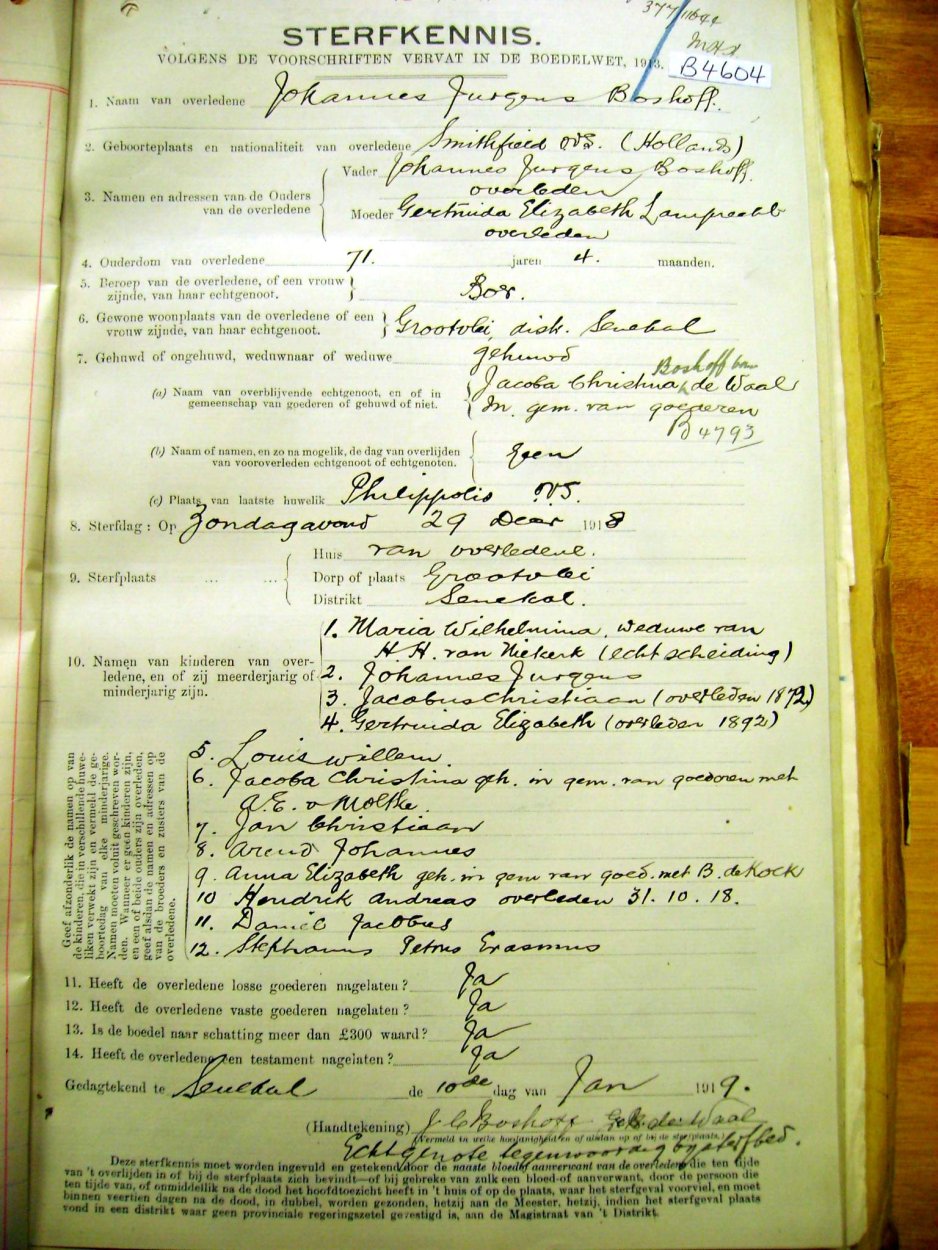 377/1644
MHG
B4604
STERFKENNIS.
VOLGENS DE VOORSCHRIFTEN VERVAT IN DE BOEDELWET, 1913.
1. Naam van overledene Johannes Jurgens Boshoff.
2. Geboorteplaats en nationaliteit van overledene Smithfield OVS. (Hollands)
Vader Johannes Jurgens Boshoff.
overleden
3. Namen en adressen van de Ouders van de overledene
Moeder Gertruida Elizabeth
overleden
4. Ouderdom van overledene 71. jaren 4. maanden.
5. Beroep van de overledene, of een vrouw zijnde, van haar echtgenoot. Boer.
6. Gewone woonplaats van de overledene of een vrouw zijnde, van haar echtgenoot. Grootvlei, dist. Senekal
7. Gehuwd of ongehuwd, weduwnaar of weduwe gehuwd
Boshoff born
(a) Naam van overblijvende echtgenoot, en of in gemeenschap van goederen of gehuwd of niet. Jacoba Christina de Waal
In gem. van goederen
B4793
(b) Naam of namen, en zo na mogelik, de dag van overlijden van vooroverleden echtgenoot of echtgenoten. Geen
(c) Plaats van laatste huwelik Philippolis OVS.
8. Sterfdag: Op Zondagavond 29 Decr 1918
Huis van overledene.
9. Sterfplaats ... ... Dorp of plaats Grootvlei
Distrikt Senekal.
10. Namen van kinderen van overledene, en of zij meerderjarig of minderjarig zijn.
1. Maria Wilhelmina, weduwe van
H. H. van Niekerk (echtscheiding)
2. Johannes Jurgens
3. Jacobus Christiaan (overleden 1872)
4. Gertruida Elizabeth (overleden 1892)
5. Louis Willem
6. Jacoba Christina geh. in gem. van goederen met
A. E. v Moltke.
7. Jan Christiaan
8. Arend Johannes
9. Anna Elizabeth geh. in gem van goed. met B. de Kock
10 Hendrik Andreas overleden 31.10.18.
11. Daniel Jacobus
12. Stephanus Petrus Erasmus
Geef afzonderlik de namen op van
de kinderen, die in verschillende huwe-
liken verwekt zijn en vermeld de ge-
boortedag van elke minderjarige.
Namen moeten voluit geschreven wor-
den. Wanneer er geen kinderen zijn,
en een of beide ouders zijn overleden,
geef alsdan de namen en adressen op
van de broeders en zusters van de
overledene.
11. Heeft de overledene losse goederen nagelaten? Ja
12. Heeft de overledene vaste goederen nagelaten? Ja
13. Is de boedel naar schatting meer dan £300 waard? Ja
14. Heeft de overledene een testament nagelaten? Ja
Gedagtekend te Senekal de 10de dag van Jan 1919.
(Handtekening) J. C. Boshoff Geb. de Waal
(Vermeld in welke hoedanigheid en of alsdan op of bij de sterfplaats.)
Echtgenote tegenwoordig by sterfbed.
Deze sterfkennis moet worden ingevuld en getekend door de naaste bloedaanverwant van de overledene die ten tijde
van 't overlijden in of bij de sterfplaats zich bevindt—of bij gebreke van zulk een bloed-of aanverwant, door de persoon die
ten tijde van, of onmiddellik na de dood het hoofdtoezicht heeft in 't huis of op de plaats, waar het sterfgeval voorviel, en moet
binnen veertien dagen na de dood, in dubbel, worden gezonden, hetzij aan de Meester, hetzij, indien het sterfgeval plaats
vond in een distrikt waar geen provinciale regeringszetel gevestigd is, aan de Magistraat van 't Distrikt.